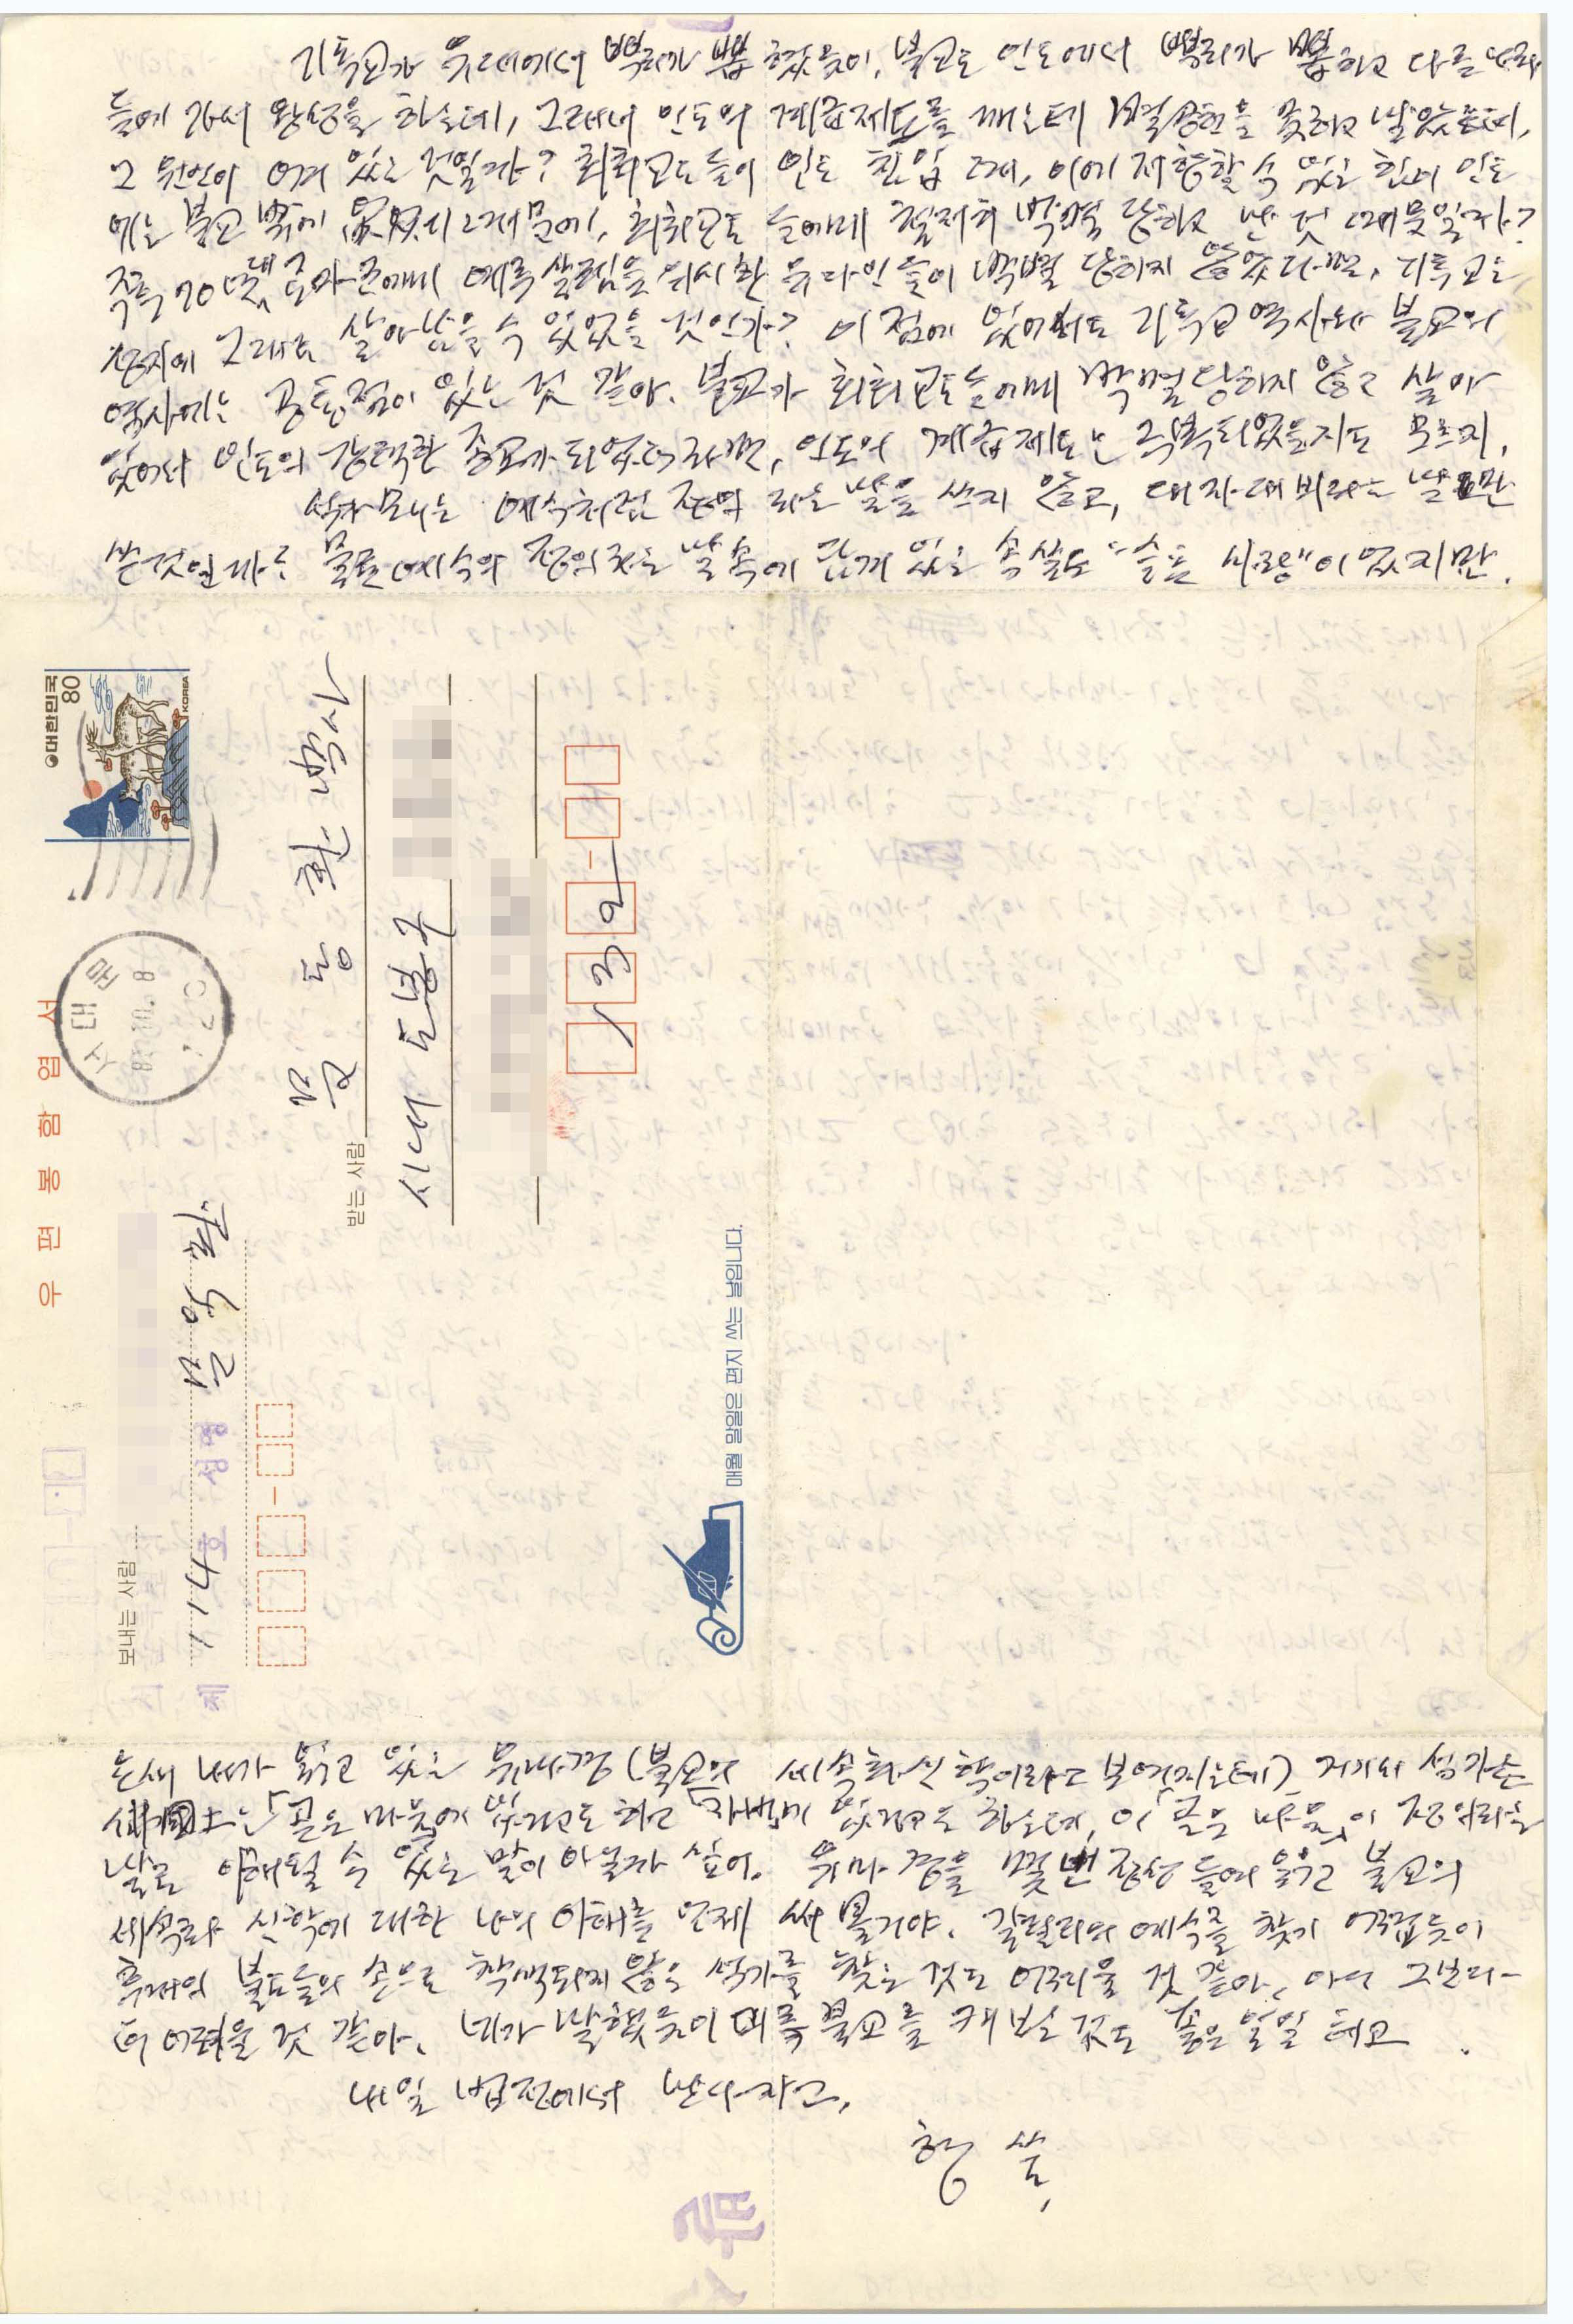 기독교가 유대에서 뿌리가 뽑혔듯이, 불교도 인도에서 뿌리가 뽑히고 다른 나라
들에 가서 왕성을 하는데, 그래서 인도의 계급제도를 깨는데 별 공헌을 못하고 말았는데,
그 원인이 어디 있는 것일까? 회회교도들이 인도 침입 때, 이에 저항할 수 있는 힘이 인도
에는 불교 밖에 없었기 때문에, 회회교도들에게 철저히 박멸 당하고 만 것 때문일까?
주후 70년대 로마군에게 예루살렘을 위시한 유다인들이 박멸 당하지 않았다면, 기독교는
현지에 그대로 살아남을 수 있었을 것인가? 이 점에 있어서도 기독교 역사와 불교의
역사에는 공통점이 있는 것 같아. 불교가 회회교도들에게 박멸당하지 않고 살아
있어서 인도의 강력한 종교가 되었더라면, 인도의 계급제도는 극복되었을지도 모르지.
석가모니는 예수처럼 정의라는 말을 쓰지 않고, 대자대비라는 말로만
쓴 것일까? 물론 예수의 정의라는 말 속에 담겨 있는 속살도 "슬픈 사랑"이었지만.
대한민국
80
KOREA
서대문
우편봉함엽서
받는 사람
문동환 박사
시내 도봉구
132-
보내는 사람
문익환
제 호 성명
매월 말일은 편지 쓰는 날입니다.
요새 내가 읽고 있는 유마경(불교의 세속화 신학이라고 불여지는데) 거기서 석가는
佛國土는 「곧은 마음」에 있다고도 하고 「자비」에 있다고도 하는데, 이 「곧은 마음」이 정의라는
말로 이해될 수 있는 말이 아닐까 싶어. 유마경을 몇 번 정성 들여 읽고 불교의
세속화 신학에 대한 나의 이해를 언제 써 볼거야. 갈릴리의 예수를 찾기 어렵듯이
후대의 불도들의 손으로 착색되지 않은 석가를 찾는 것도 어려울 것 같아. 아니 그보다
더 어려울 것 같아. 네가 말했듯이 미륵불교를 캐 보는 것도 좋은 일일 테고.
내일 법정에서 만나자고,
형 씀.